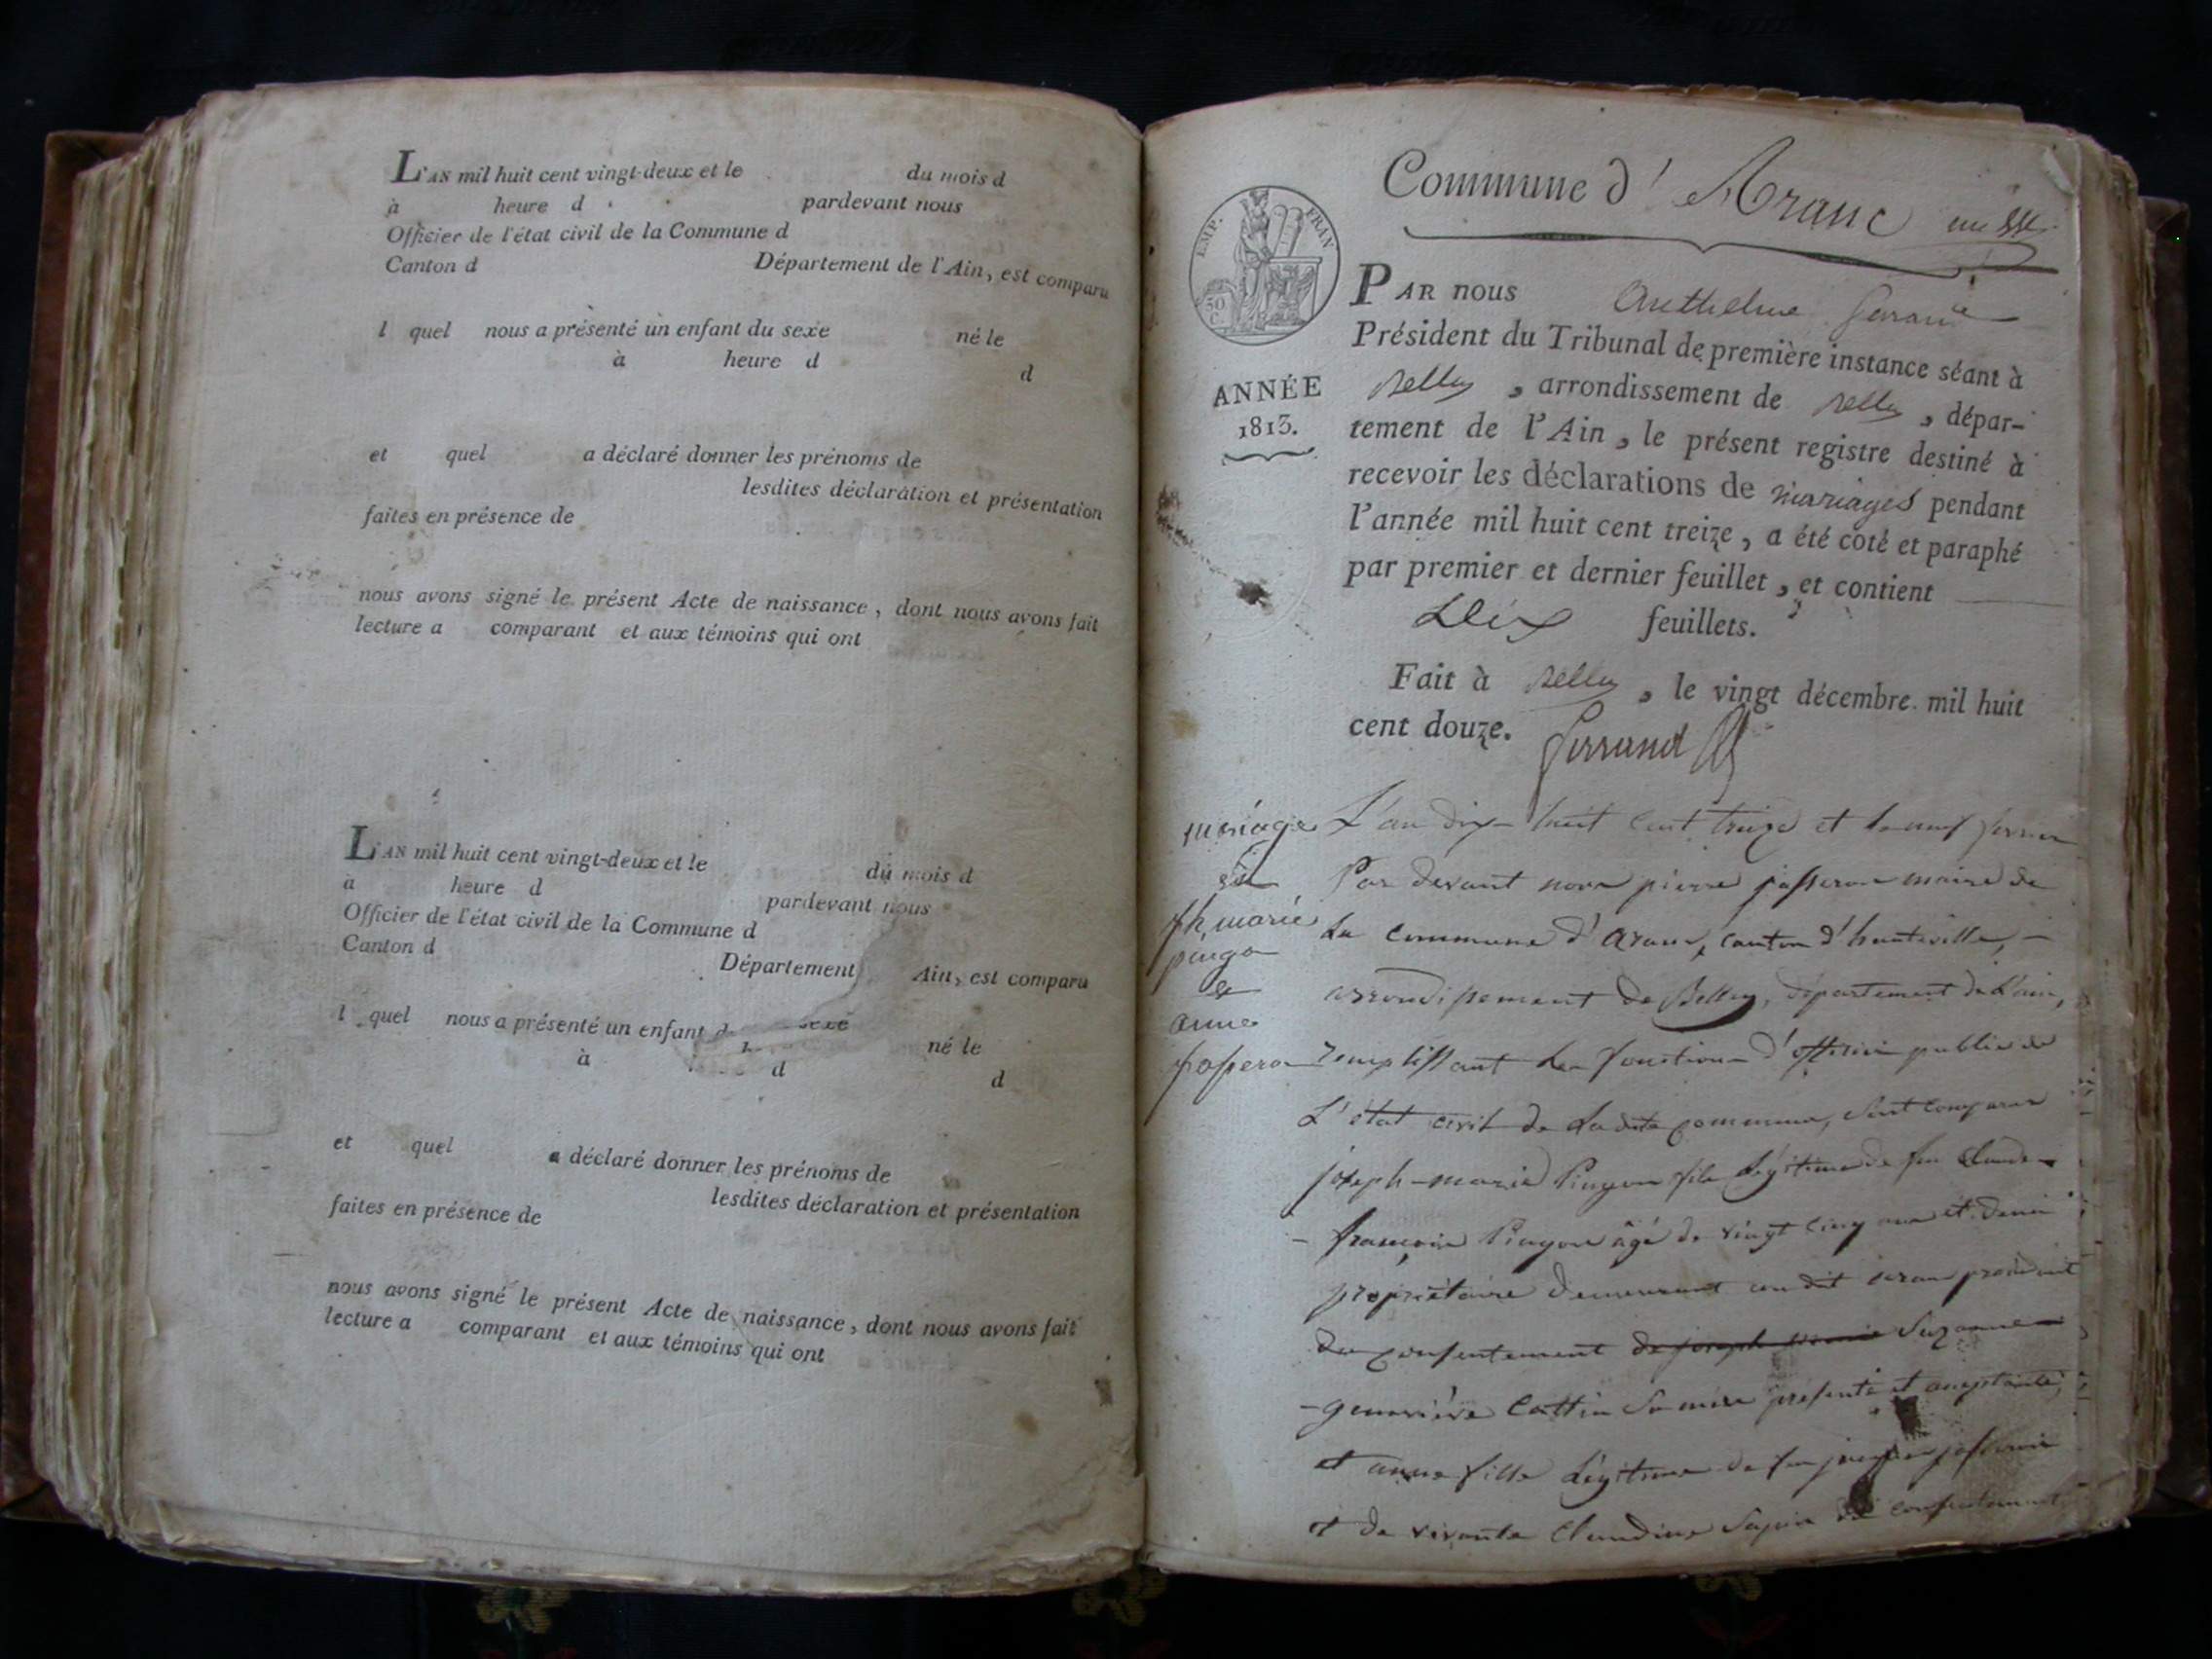 L'AN mil huit cent vingt-deux et le du mois d
à heure d pardevant nous
Officier de l'état civil de la Commune d
Canton d Département de l'Ain, est comparu
l quel nous a présenté un enfant du sexe né le
à heure d d
et quel a déclaré donner les prénoms de
lesdites déclaration et présentation
faites en présence de
nous avons signé le présent Acte de naissance, dont nous avons fait
lecture a comparant et aux témoins qui ont
L'AN mil huit cent vingt-deux et le du mois d
à heure d pardevant nous
Officier de l'état civil de la Commune d
Canton d Département Ain, est comparu
l quel nous a présenté un enfant d sexe né le
à d d
et quel a déclaré donner les prénoms de
lesdites déclaration et présentation
faites en présence de
nous avons signé le présent Acte de naissance, dont nous avons fait
lecture a comparant et aux témoins qui ont
Commune d'Aranc
EMP. FRAN
50 C.
ANNÉE
1813.
PAR nous Anthelme
Président du Tribunal de première instance séant à
Belley, arrondissement de Belley, dépar-
tement de l'Ain, le présent registre destiné à
recevoir les déclarations de mariages pendant
l'année mil huit cent treize, a été coté et paraphé
par premier et dernier feuillet, et contient
Dix feuillets.
Fait à Belley, le vingt décembre mil huit
cent douze.
mariage
ph marie
pingon
&
anne
L'an dix huit cent treize et le neuf
Par devant nous pierre passerou maire de
La commune d'aranc, canton d'hauteville,
arrondissement de Belley, département de L'ain,
remplissant les fonctions d'officier public de
L'état civil de Ladite commune, sont comparus
joseph-marie Pingon fils Légitime de feu Claude
françois Pingon âgé de vingt cinq ans et demi
propriétaire demeurant au dit aranc
du consentement de joseph marie Suzanne
genevière Cottin Sa mère présente et acceptante
et anne fille Légitime de feu
et de vivante Claudine consentement